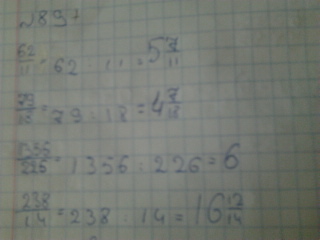 №897
62/11 = 62 : 11 = 5 7/11
79/18 = 79 : 18 = 4 7/18
1356/226 = 1356 : 226 = 6
238/14 = 238 : 14 = 16 12/14